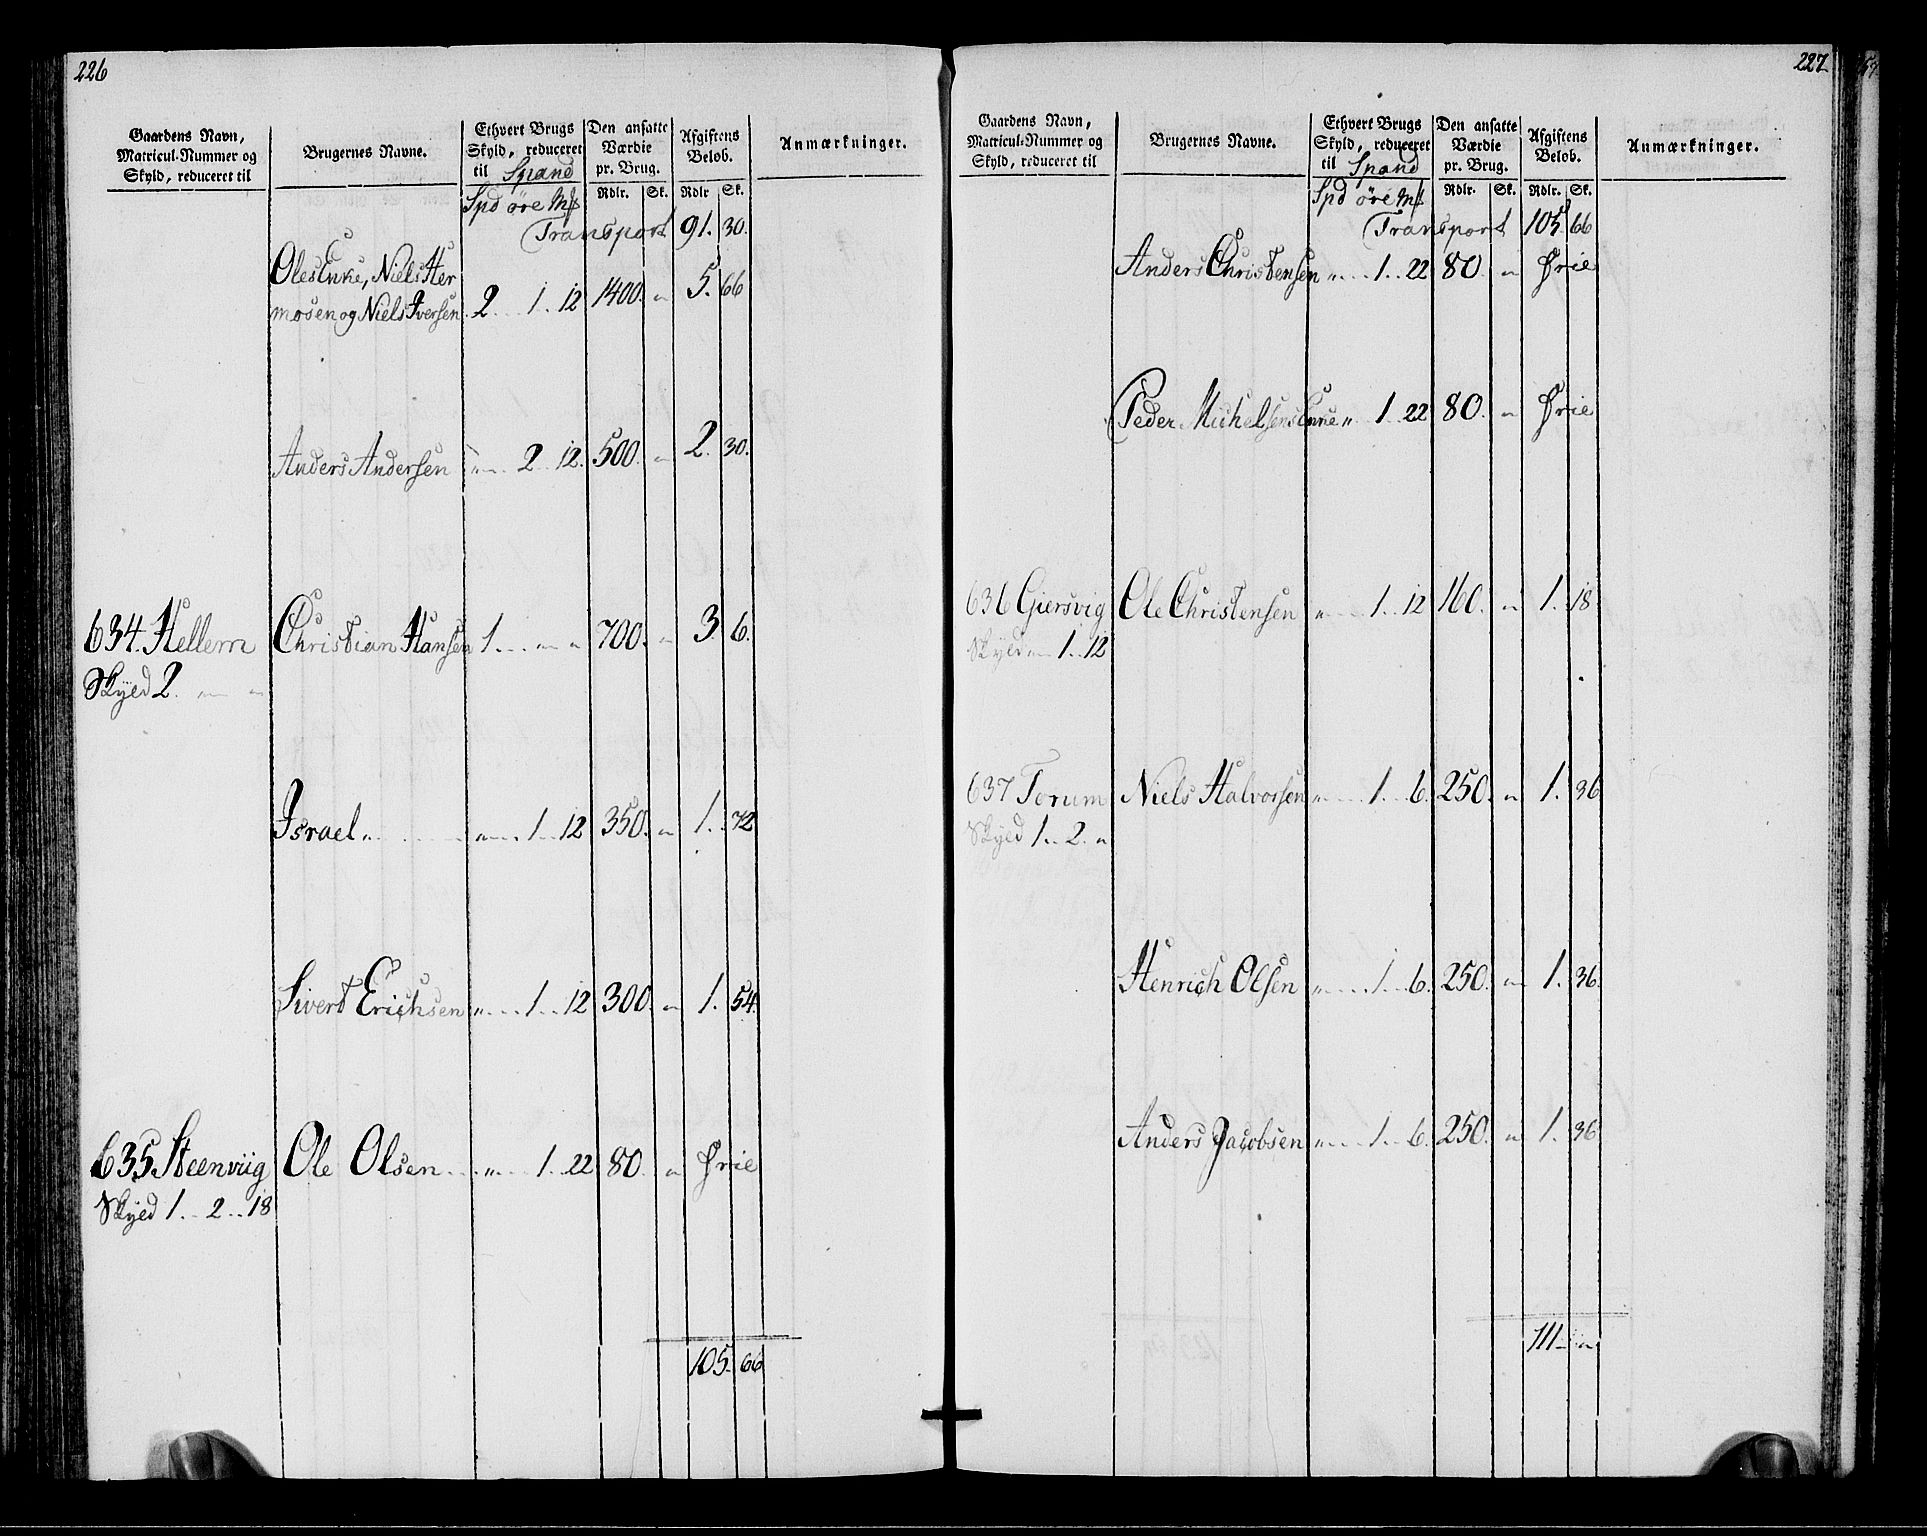 226
Gaardens Navn, Matricul-Nummer og Skyld, reduceret til
Brugernes Navne.
Ethvert Brugs Skyld, reduceret til Spand
Den ansatte Værdie pr. Brug.
Afgiftens Beløb.
Anmærkninger.
Spd øre Mk Rdlr. Sk. Rdlr Sk.
Transport 91. 30.
Oles Enke, Niels Her
mosen og Niels Iversen 2 .. 1 .. 12 1400. " 5. 66
Anders Andersen " .. 2 .. 12. 500. " 2. 30.
634. Hellem Christian Hansen 1 .. " " 700. " 3 6.
Skyld 2. " "
Israel " " .. 1 .. 12 350. " 1. 72
Sivert Erichsen " .. 1 .. 12 300. " 1. 54.
635 Steenviig Ole Olsen " .. 1 .. 22 80. " Frie
Skyld 1 .. 2 .. 18
105. 66
227.
Gaardens Navn, Matricul-Nummer og Skyld, reduceret til
Brugernes Navne.
Ethvert Brugs Skyld, reduceret til Spand
Den ansatte Værdie pr. Brug.
Afgiftens Beløb.
Anmærkninger.
Spd øre Mk Rdlr. Sk. Rdlr. Sk.
Transport 105. 66
Anders Christensen " .. 1 .. 22 80. " Frie
Peder Michelsens Enke " 1 22 80. " Frie
636 Giersvig Ole Christensen " .. 1 .. 12 160. " 1. 18
Skyld " 1 .. 12
637 Forum Niels Halvorsen " .. 1 .. 6. 250. " 1. 36
Skyld 1 .. 2. "
Henrich Olsen " .. 1 .. 6. 250. " 1. 36.
Anders Jacobsen " .. 1 .. 6. 250. " 1. 36.
111 "